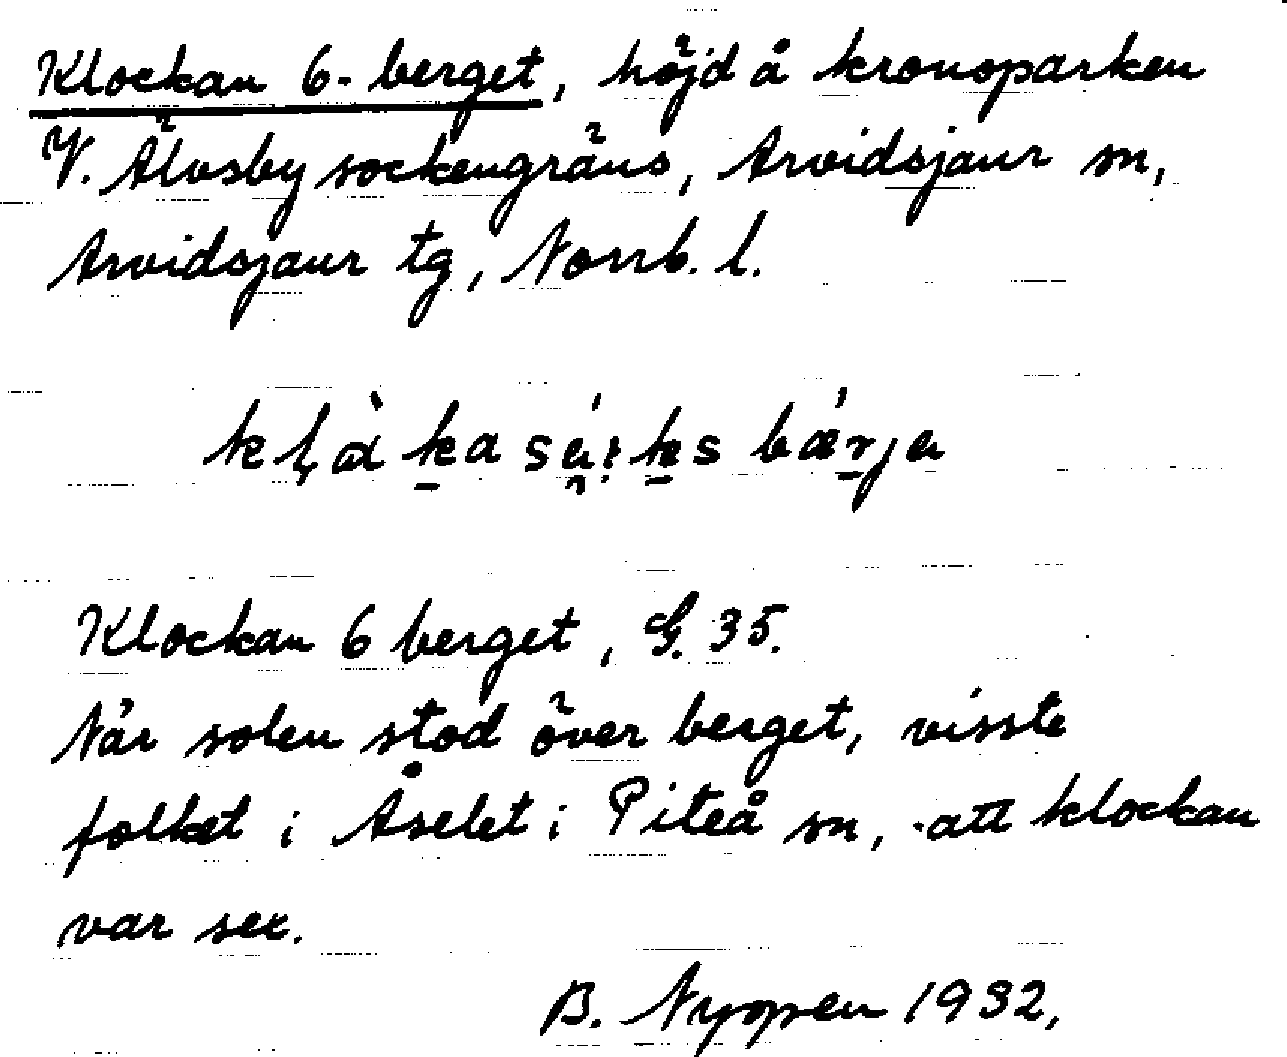 Klockan 6-berget, höjd å kronoparken
V. Älvsby sockengräns, Arvidsjaur sn,
Arvidsjaur tg, Norrb. l.
Klockan 6 berget, G. 35.
När solen stod över berget, visste
folket i Åselet i Piteå sn, att klockan
var sex.
B. Nyopen 1932,